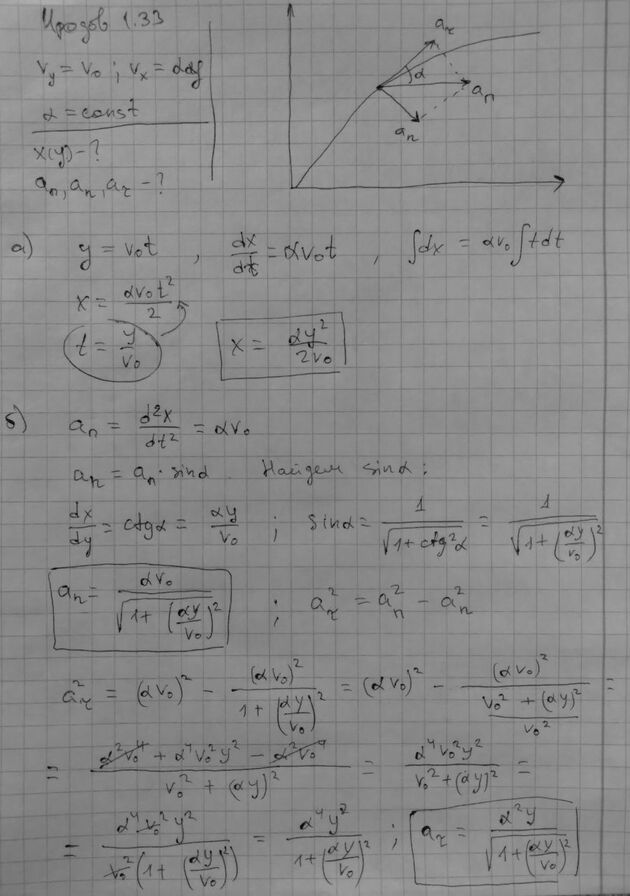 Иродов 1.33
v_y = v_0 ; v_x = αy
α = const
x(y) - ?
a_п, a_n, a_τ - ?
a_τ
α
a_п
a_n
а) y = v_0 t , dx/dt = αv_0 t , ∫dx = αv_0 ∫t dt
x = αv_0 t²/2
t = y/v_0
x = αy²/2v_0
б) a_п = d²x/dt² = αv_0
a_n = a_п · sinα. Найдем sinα:
dx/dy = ctgα = αy/v_0 ; sinα = 1/√(1 + ctg²α) = 1/√(1 + (αy/v_0)²)
a_n = αv_0/√(1 + (αy/v_0)²) ; a_τ² = a_п² - a_n²
a_τ² = (αv_0)² - (αv_0)²/(1 + (αy/v_0)²) = (αv_0)² - (αv_0)²/((v_0² + (αy)²)/v_0²) =
= (α²v_0⁴ + α⁴v_0²y² - α²v_0⁴)/(v_0² + (αy)²) = α⁴v_0²y²/(v_0² + (αy)²) =
= α⁴v_0²y²/(v_0²(1 + (αy/v_0)²)) = α⁴y²/(1 + (αy/v_0)²) ; a_τ = α²y/√(1 + (αy/v_0)²)